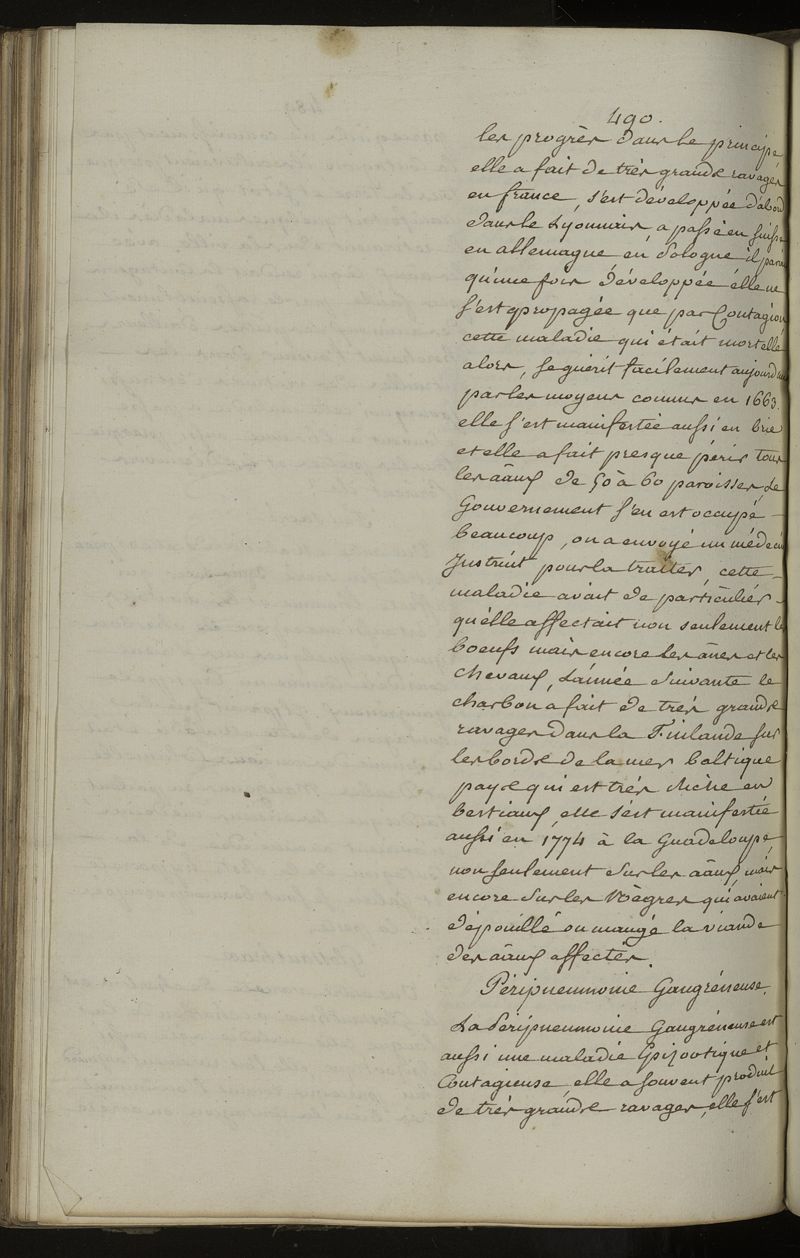 490.
les progrès dans le principe
elle a fait de très grands ravages
en france, s'est développée d'abord
dans le Lyonnais, a passé en suisse
en allemagne en Pologne il parai
qu'une fois développée elle ne
s'est propagée que par Contagion
cette maladie qui était mortelle
alors, se guérit facilement aujourd'hui
par les moyens connus en 1663.
elle s'est manifestée aussi en brie
et elle a fait presque périr tous
les aâux de 50 à 60 paroisses, Le
Gouvernement s'en est occupé
beaucoup, on a envoyé un médecin
Instruit pour la traiter, cette
maladie avait de particulier
qu'elle affectait non seulement le
boeufs mais encore les ânes et les
chevaux, L'année suivante le
charbon a fait de très grands
ravages dans la Finlande sur
les bords de la mer baltique
pays qui est très Riche en
bestiaux, elle s'est manifestée
aussi en 1774 à la Guadeloupe,
non seulement sur les aâux, mais
encore sur les Nègres qui avaient
dépouillé ou mangé la viande
des aâux affectés.
Péripneumonie Gangréneuse.
La Péripneumonie Gangréneuse est
aussi une maladie Epizootique et
Contagieuse, elle a souvent produit
de très grands ravages, elle s'est